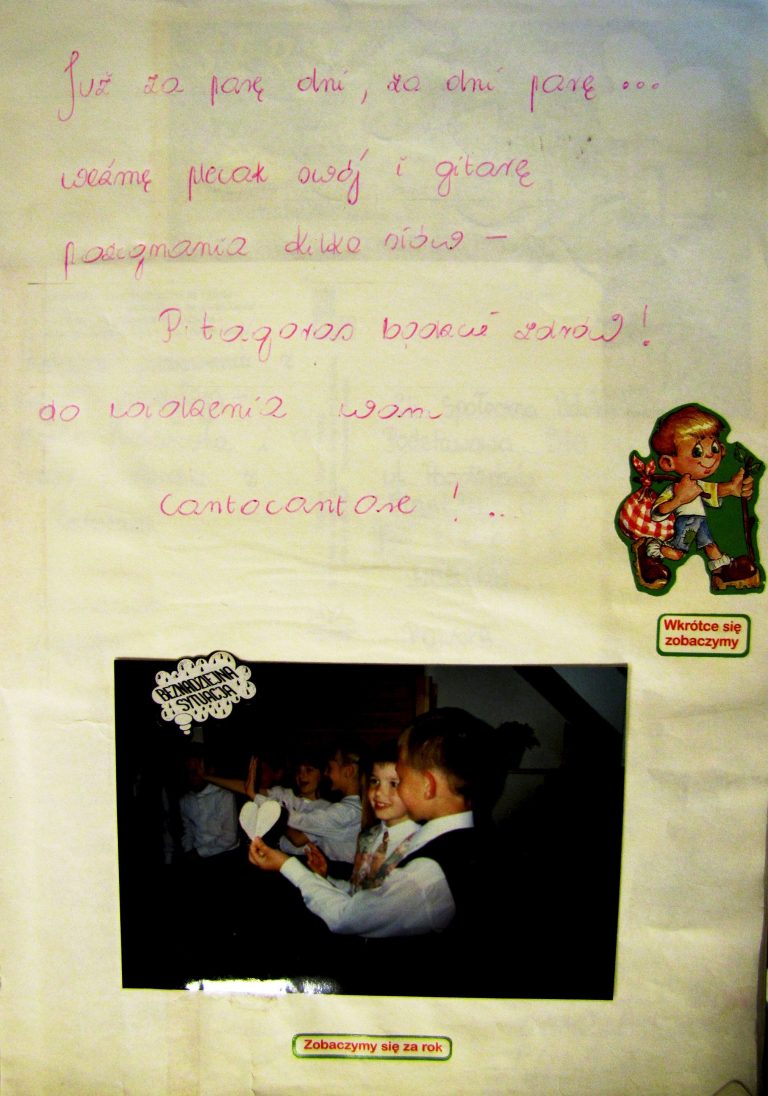 Już za parę dni, za dni parę ...
weźmę plecak swój i gitarę
pożegnania kilka słów –
Pitagoras bądźcie zdrów!
do widzenia wam
cantocantore!..
Wkrótce się
zobaczymy
BEZNADZIEJNA
SYTUACJA
Zobaczymy się za rok